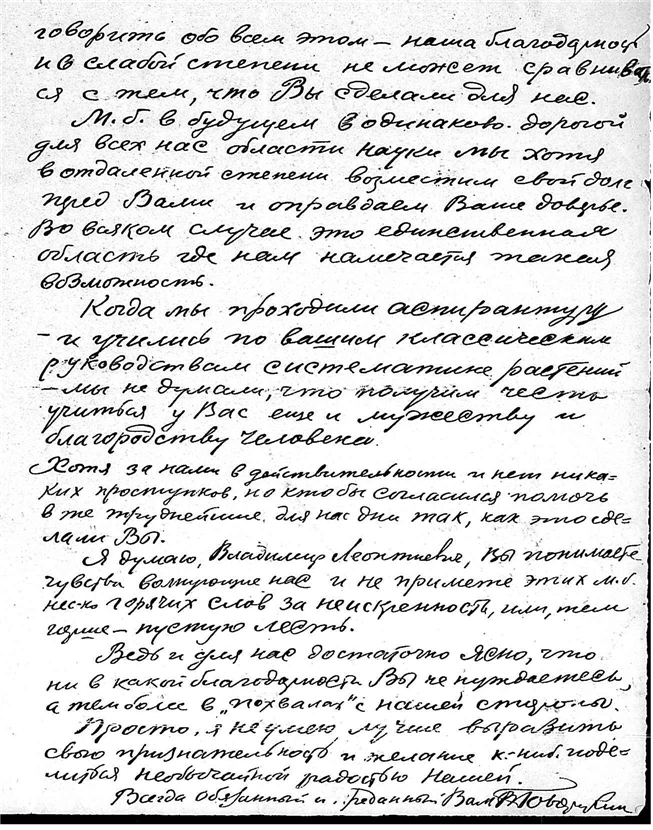 говорить обо всем этом — наша благодарность
и в слабой степени не может сравнивать-
ся с тем, что Вы сделали для нас.
М.б. в будущем в одинаково дорогой
для всех нас области науки мы хотя
в отдаленной степени возместим свой долг
пред Вами и оправдаем Ваше доверье.
Во всяком случае это единственная
область где нам намечается такая
возможность.
Когда мы проходили аспирантуру
— и учились по вашим классическим
руководствам систематике растений
— мы не думали, что получим честь
учиться у Вас еще и мужеству и
благородству человека.
Хотя за нами в действительности и нет ника-
ких проступков, но кто бы согласился помочь
в же труднейшие для нас дни так, как это сде-
лали Вы.
Я думаю, Владимир Леонтьевич, Вы понимаете
чувства волнующие нас и не примете этих м.б.
неск-ко горячих слов за неискренность, или, тем
горше — пустую лесть.
Ведь и для нас достаточно ясно, что
ни в какой благодарности Вы не нуждаетесь,
а тем более в „похвалах" с нашей стороны.
Просто, я не умею лучше выразить
свою признательность и желание к.-ниб. поде-
литься необычайной радостью нашей.
Всегда обязанный и преданный Вам